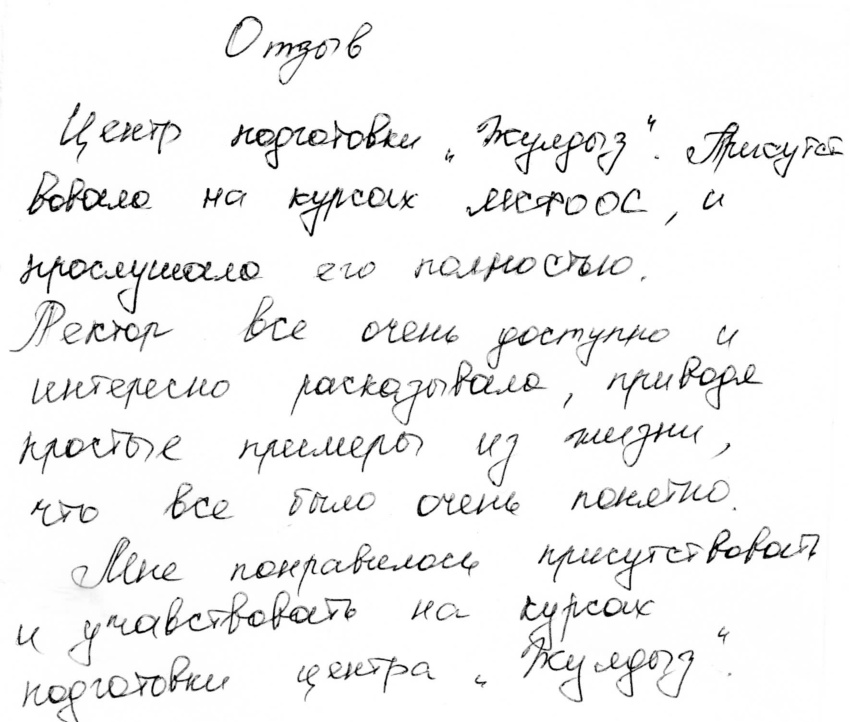 Отзыв
Центр подготовки „Жулдыз“. Присутст
вовала на курсах МСФООС, и
прослушала его полностью.
Лектор все очень доступно и
интересно расказывала, приводя
простые примеры из жизни,
что все было очень понятно.
Мне понравилось присутствовать
и учавствовать на курсах
подготовки центра „Жулдыз“.